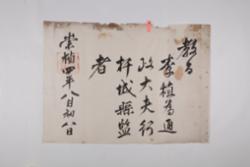 教旨
李植為通
政大夫行
杆城縣監
者
崇禎四年八月初八日